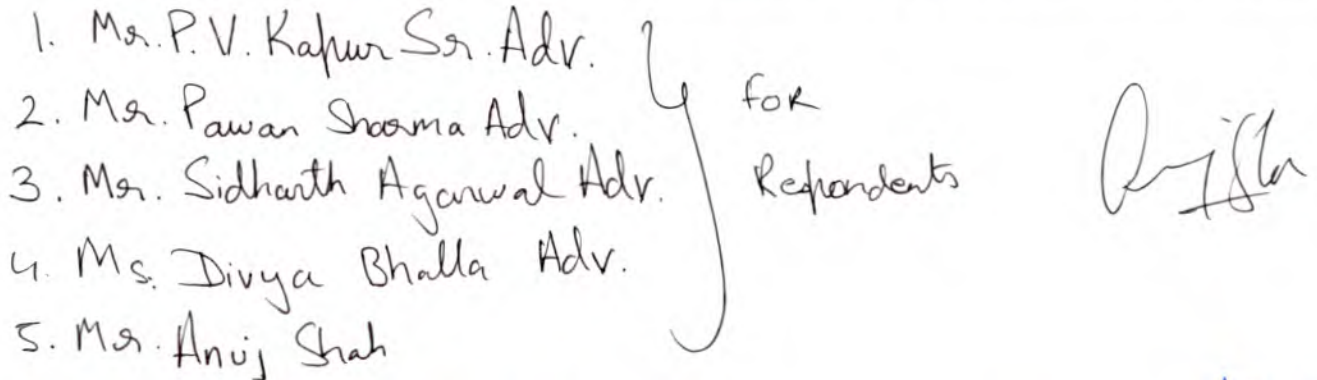 1. Mr. P. V. Kapur Sr. Adv.
2. Mr. Pawan Sharma Adv.
3. Mr. Sidharth Agarwal Adv.
4. Ms. Divya Bhalla Adv.
5. Mr. Anuj Shah
for
Repondents